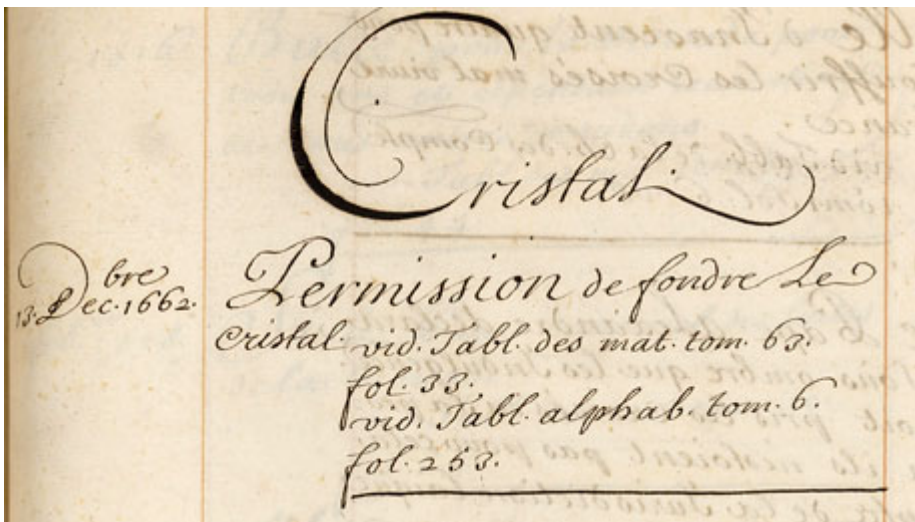 Cristal.
13. Dec.bre 1662.
Permission de fondre Le
Cristal. vid. Tabl. des mat. tom. 63.
fol. 33.
vid. Tabl. alphab. tom. 6.
fol. 253.